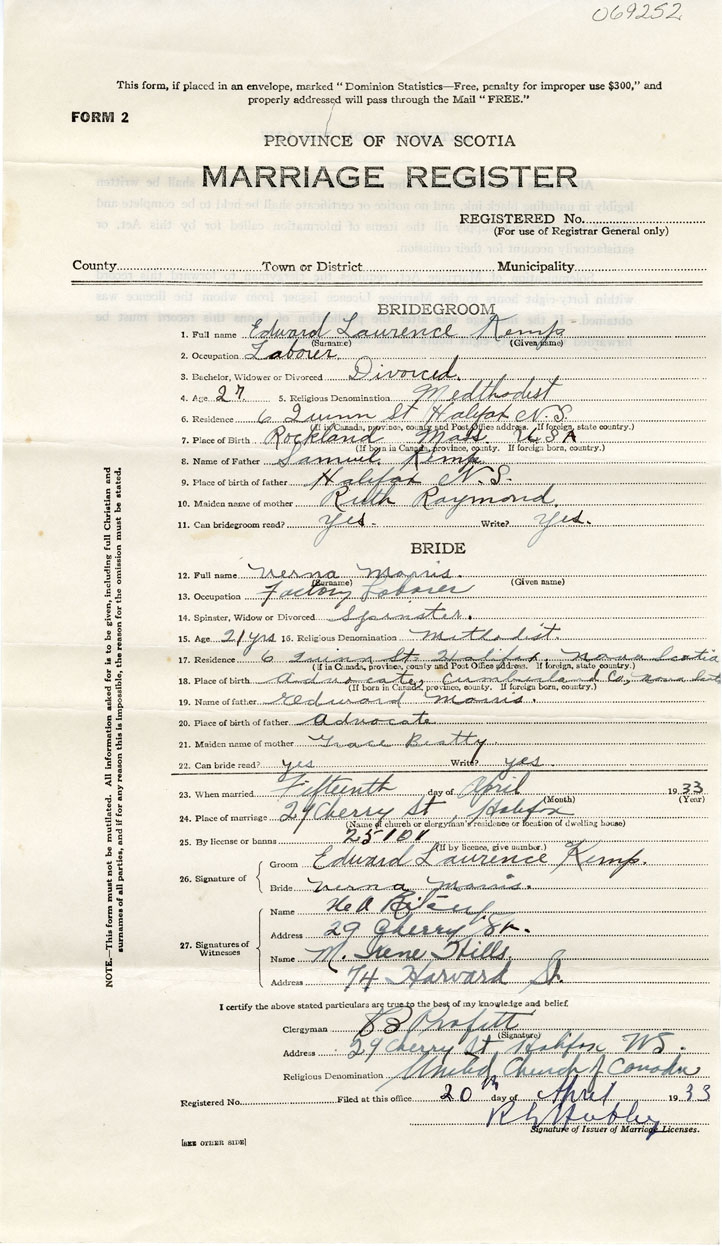 069252
This form, if placed in an envelope, marked "Dominion Statistics—Free, penalty for improper use $300," and
properly addressed will pass through the Mail "FREE."
FORM 2
PROVINCE OF NOVA SCOTIA
MARRIAGE REGISTER
REGISTERED No.
(For use of Registrar General only)
County Town or District Municipality
BRIDEGROOM
1. Full name Edward Laurence Kemp
(Surname) (Given name)
2. Occupation Laborer
3. Bachelor, Widower or Divorced Divorced.
4. Age 27 5. Religious Denomination Medthodist
6. Residence 6 Quinn St Halifax N.S.
(If in Canada, province, county and Post Office address. If foreign, state country.)
7. Place of Birth Rockland Mass. U.S.A
(If born in Canada, province, county. If foreign born, country.)
8. Name of Father Samuel Kemp
9. Place of birth of father Halifax N.S.
10. Maiden name of mother Ruth Raymond.
11. Can bridegroom read? Yes. Write? Yes.
BRIDE
12. Full name Verna Morris.
(Surname) (Given name)
13. Occupation Factory Laborer
14. Spinster, Widow or Divorced Spinster.
15. Age 21 yrs 16. Religious Denomination Methodist.
17. Residence 6 Quinn St. Halifax, Nova Scotia
(If in Canada, province, county and Post Office address. If foreign, state country.)
18. Place of birth Advocate, Cumberland Co, Nova
(If born in Canada, province, county. If foreign born, country.)
19. Name of father Edward Morris.
20. Place of birth of father Advocate
21. Maiden name of mother Grace Beatty
22. Can bride read? yes Write? yes.
23. When married Fifteenth day of April 1933
(Month) (Year)
24. Place of marriage 29 Cherry St, Halifax
(Name of church or clergyman's residence or location of dwelling house)
25. By license or banns 25101
(If by licence, give number.)
26. Signature of
Groom Edward Laurence Kemp.
Bride Verna Morris.
27. Signatures of Witnesses
Name
Address 29 Cherry St.
Name M. Irene Hills
Address 74 Harvard St.
I certify the above stated particulars are true to the best of my knowledge and belief
Clergyman Profitt
(Signature)
Address 29 Cherry St Halifax NS.
Religious Denomination United Church of Canada
Registered No. Filed at this office 20th day of April 1933
Hubley
Signature of Issuer of Marriage Licenses.
[SEE OTHER SIDE]
NOTE.—This form must not be mutilated. All information asked for is to be given, including full Christian and
surnames of all parties, and if for any reason this is impossible, the reason for the omission must be stated.